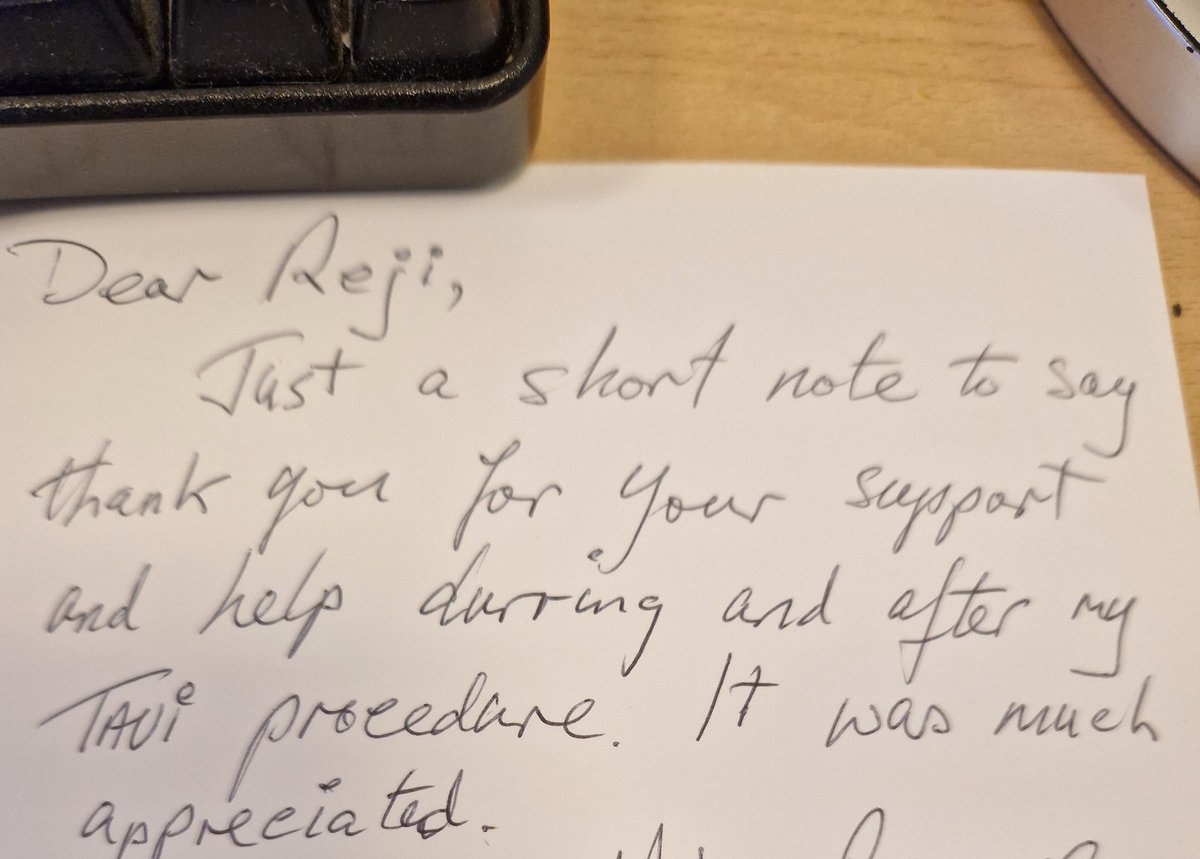 Dear Reji,
Just a short note to say
thank you for your support
and help durring and after my
TAVi procedure. It was much
appreciated.